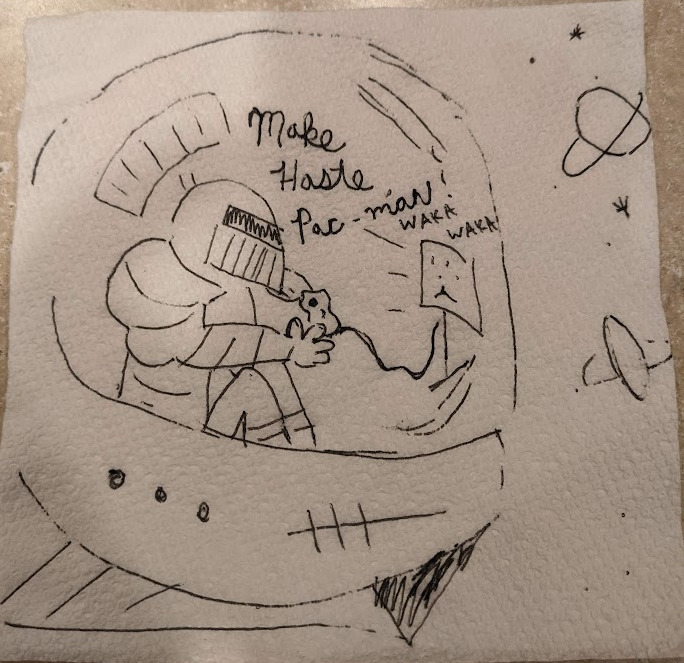 Make
Haste
Pac-man!
WAKA
WAKA